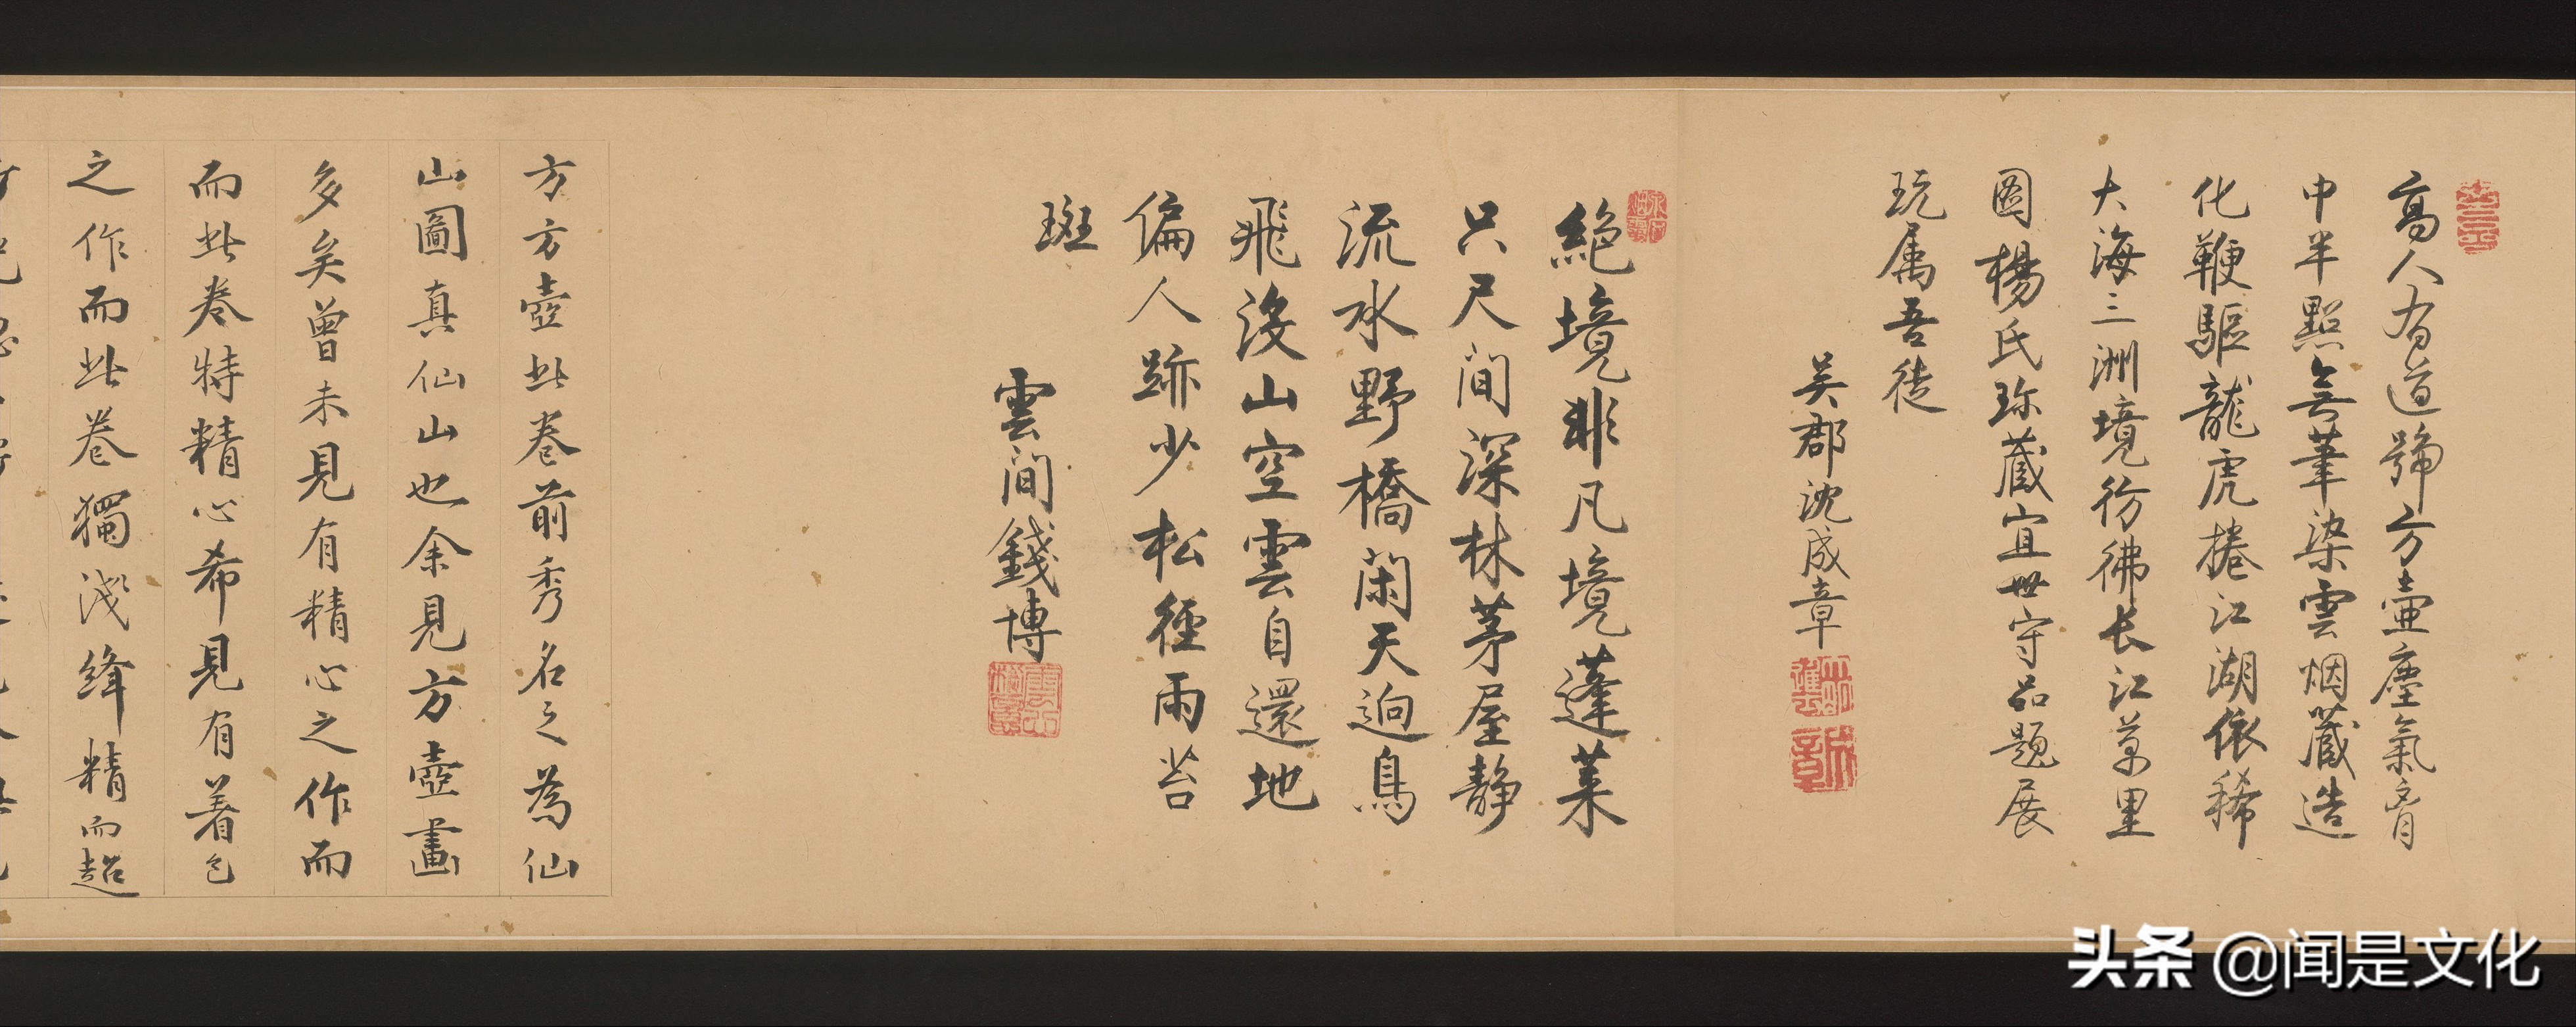 高人有道號方壺塵氣胷
中半點無筆染雲烟藏造
化鞭驅龍虎捲江湖依稀
大海三洲境彷彿長江萬里
圖楊氏珎藏宜世守品題展
玩属吾徒
吴郡沈成章
絶境非凡境蓬萊
只尺間深林茅屋静
流水野橋閑天迥鳥
飛没山空雲自還地
偏人跡少松徑雨苔
斑
雲間錢博
方方壺此卷前秀名之為仙
山圖真仙山也余見方壺畫
多矣曾未見有精心之作而
而此卷特精心希見有着色
之作而此卷獨淺絳精而超
头条 @闻是文化